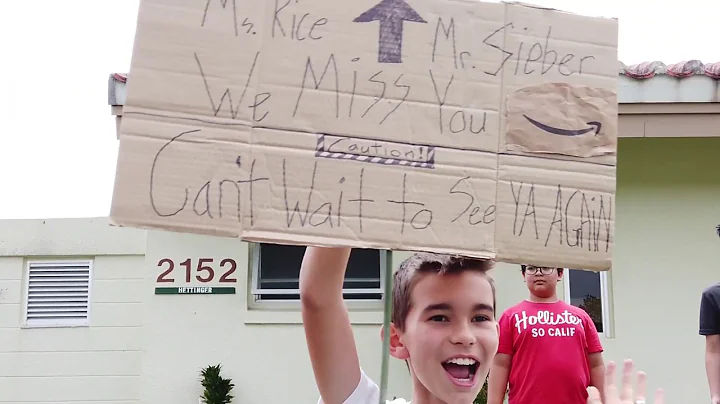 Ms. Rice
Mr. Sieber
We Miss You
Caution!
Can't Wait to See YA AGAiN
2152
HETTINGER
Hollister
SO CALIF